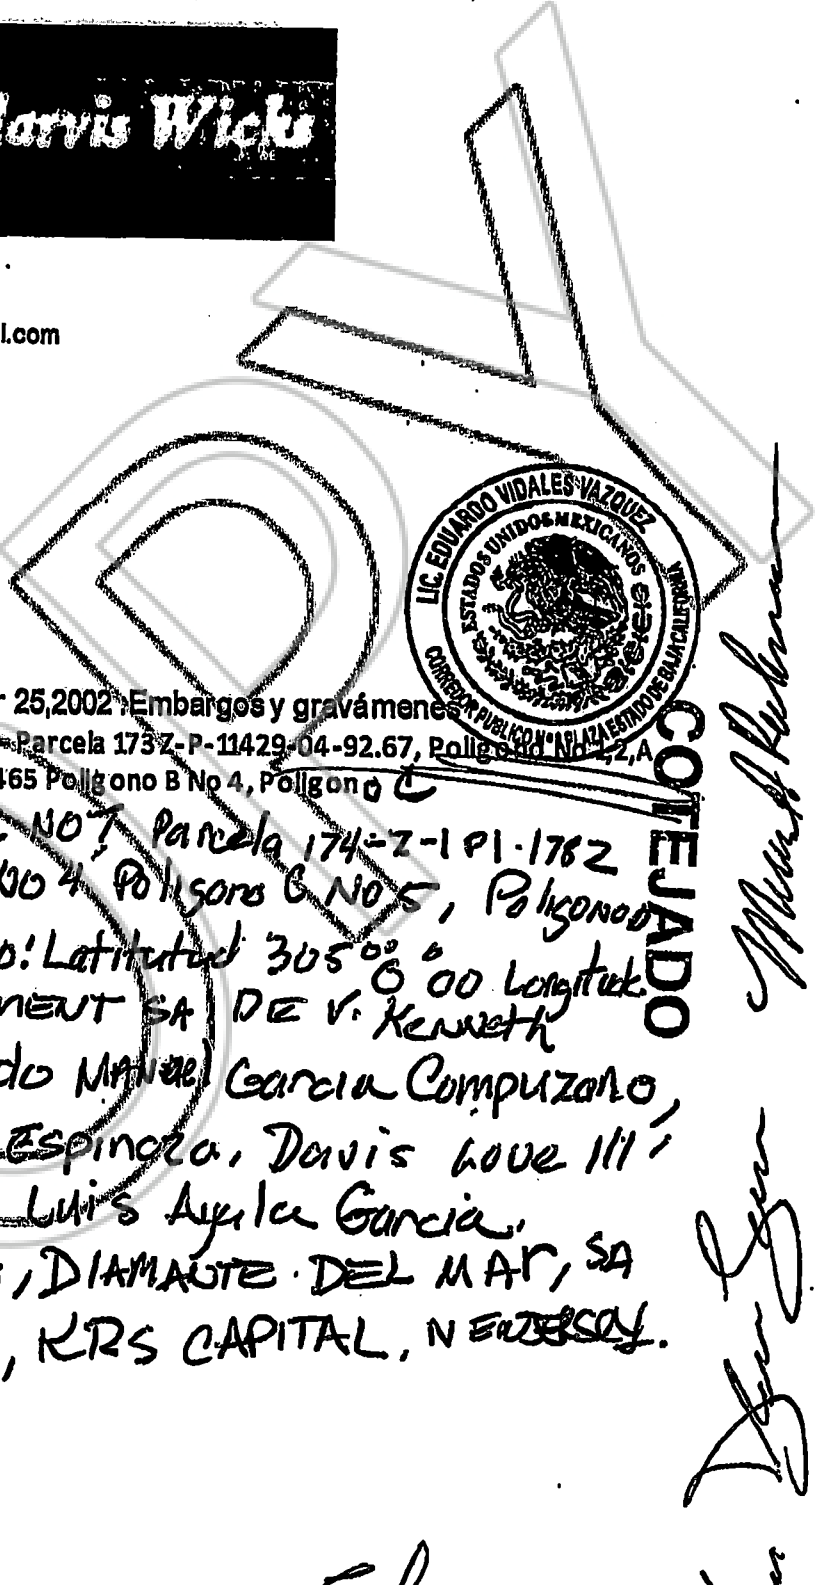 Jarvis Wicks
l.com
LIC. EDUARDO VIDALES VAZQUEZ
ESTADOS UNIDOS MEXICANOS
CORREDOR PUBLICO Nº 8 PLAZA ESTADO DE BAJA CALIFORNIA
COTEJADO
COPY
r 25,2002 :Embargos y gravámenes
Parcela 173 Z-P-11429-04-92.67, Poligono No 1,2,A
465 Poligono B No 4, Poligono C
NO 7 Parcela 174-Z-1 P1-1762
00 4, Poligono C NO 5, Poligono D
o: Latitutud 305°° 8° 00 Longitud.
MENT SA DE V. Kenneth
do Manuel Garcia Compuzano,
Espinoza, Davis Love III,
Luis Ayala Garcia.
, DIAMANTE DEL MAR, SA
, KRS CAPITAL, NEWJERSEY.